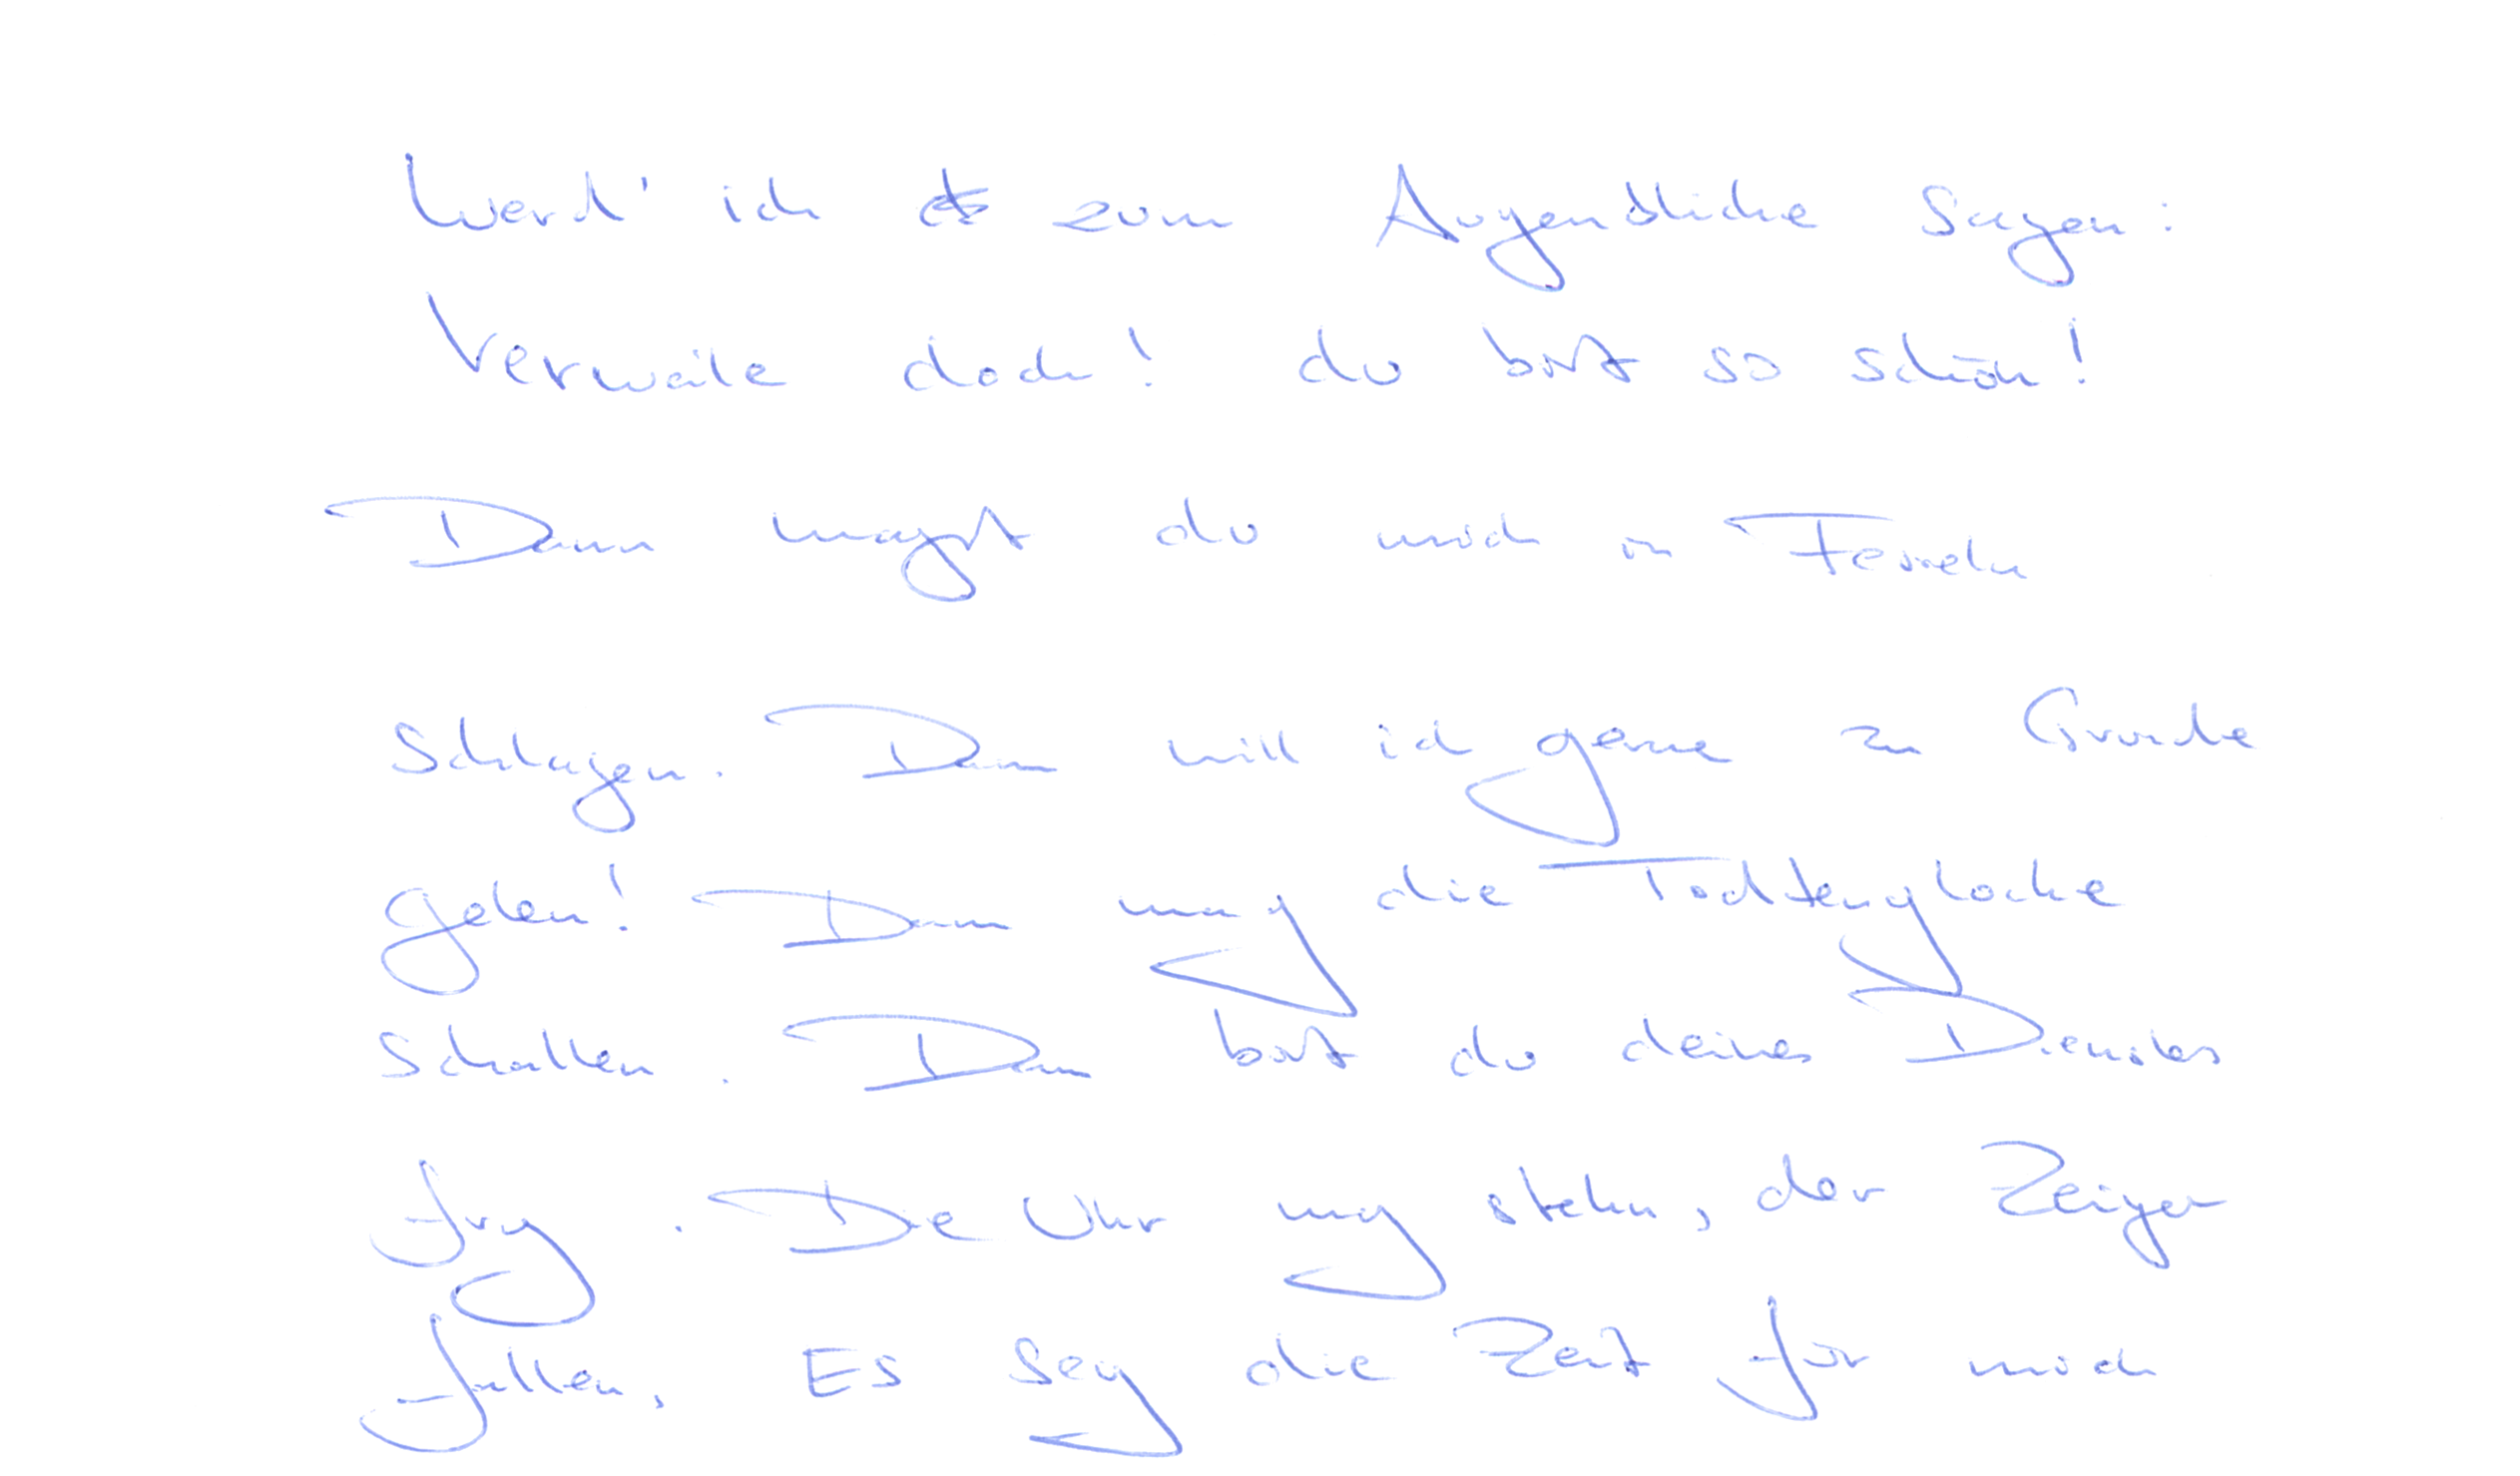 Werd' ich zum Augenblicke Sagen:
Verweile doch! du bist so schön!
Dann magst du mich in Fesseln
Schlagen. Dann will ich gerne zu Grunde
gehen! Dann mag die Todtenglocke
Schallen. Dann bist du deines Dienstes
frey. Die Uhr mag stehn, der Zeiger
fallen, Es sey die Zeit für mich